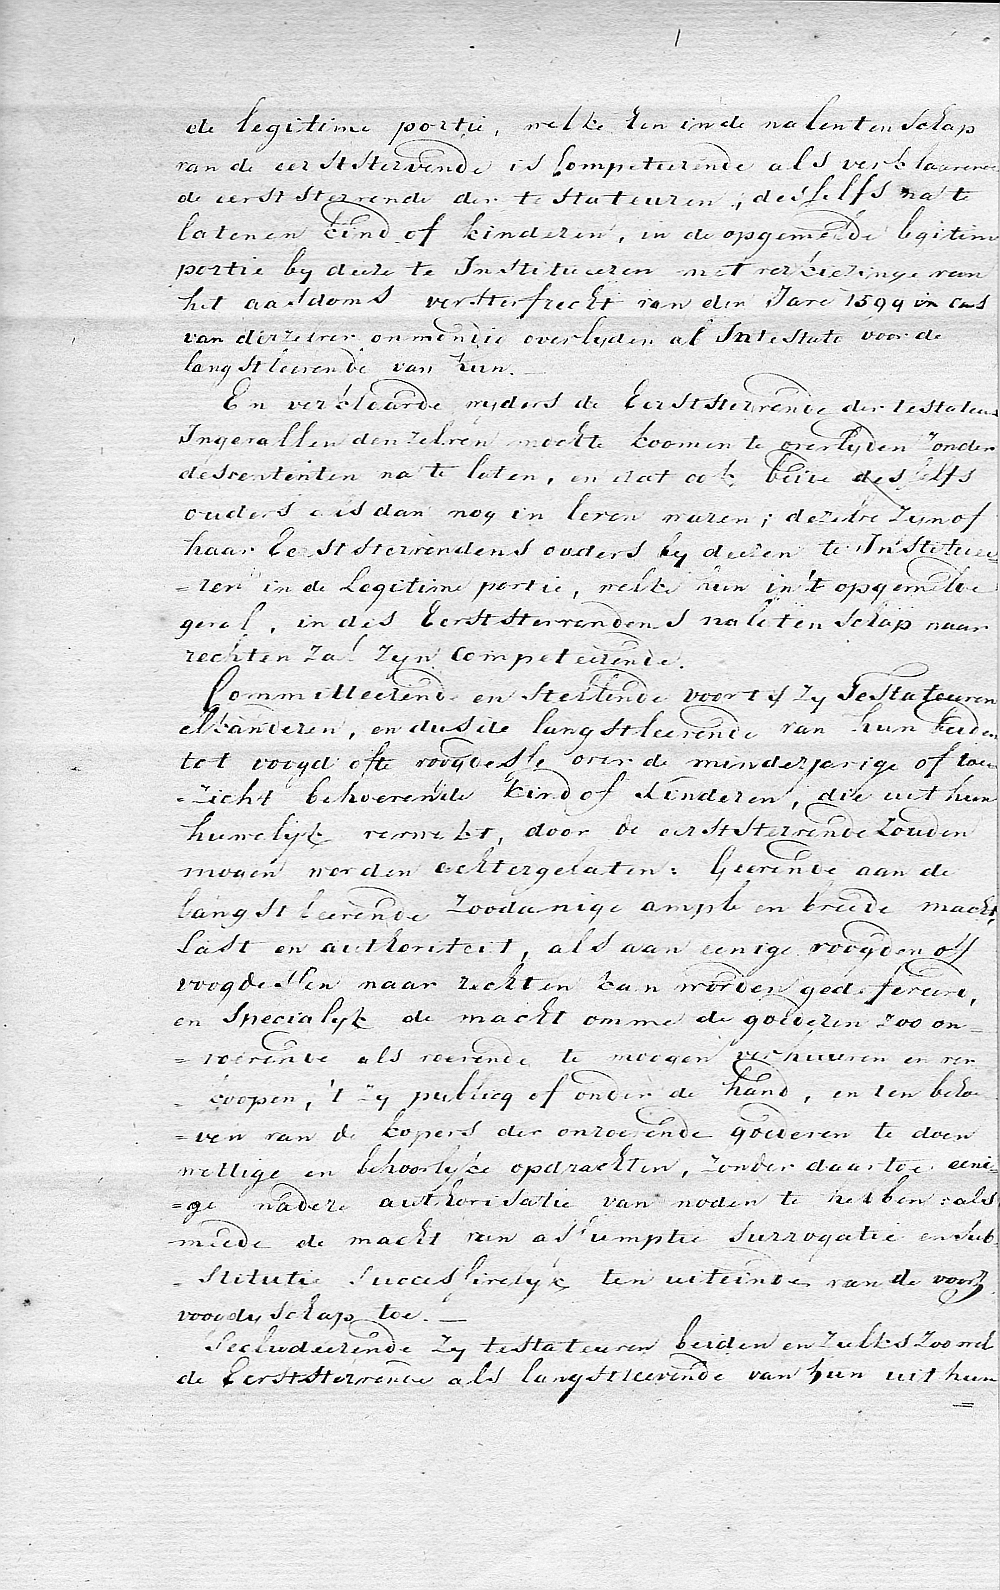 de legitime portie, welke hen in de nalentenschap
van de eerststervende is Competeerende als verklaarende
de eerststervende der testateuren, desselfs na te
latenen kind of kinderen, in de opgemelde legitime
portie by deeze te Institueeren met verkiezinge van
het aasdoms versterfrecht van den Jare 1599 in cas
van derzelver onmondig overlyden ab Intestato voor de
langstleevende van hun. —
En verklaarde wyders de Eerststervende der testateuren
Ingevallen denzelven mochte koomen te overlyden zonder
descendenten na te laten, en dat ook beide desselfs
ouders als dan nog in leven waren; dezelve zyn of
haar Eerststervendens ouders by deezen te Institueе
=ren in de Legitime portie, welke hun in 't opgemelde
geval, in des Eerststervendens naletenschap naar
rechten zal zyn Competeerende.
Committeerende en Stellende voorts zy Testateuren
elkanderen, en dus de langstleevende van hun beiden
tot voogd ofte voogdesse over de minderjarige of toe
=zicht behoevende kind of kinderen, die uit hun
huwelyk verwekt, door de eerststervende zouden
mogen worden achtergelaten: Geevende aan de
langstleevende zoodanige ample en breede macht,
last en authoriteit, als aan eenige voogden of
voogdessen naar rechten kan worden gedefereerd,
en Specialyk de macht omme de goederen zoo on-
=roerende als roerende te moogen verhuuren en ver
=koopen, 't zy publicq of onder de hand, en ten behoe
=ven van de kopers der onroerende goederen te doen
wettige en behoorlyke opdrachten, zonder daartoe eeni-
=ge nadere authorisatie van noden te hebben: als
meede de macht van assumptie surrogatie en sub-
=stitutie successivelyk ten uiteinde van de voorz.
voogdyschap toe. —
Secludeerende zy testateuren beiden en zulks zoo wel
de Eerststervende als langstleevende van hun uit hun